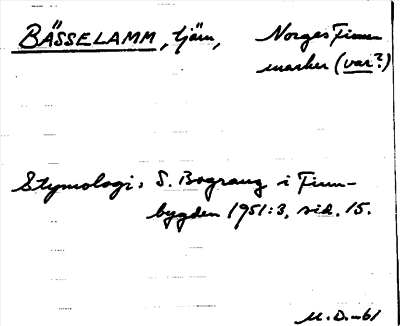 BÄSSELAMM, tjärn, Norges Finn-
marker (var?)
Etymologi: S. Bograng i Finn-
bygden 1951:3, sid. 15.
M.D. -61